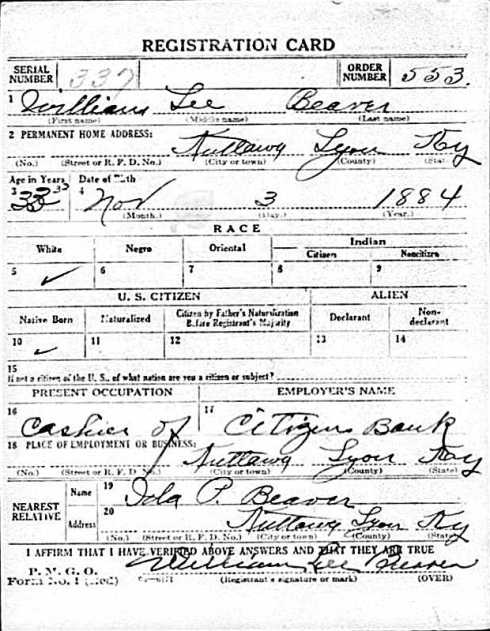 REGISTRATION CARD
SERIAL NUMBER 337 ORDER NUMBER 553
1 William Lee Beaver
(First name) (Middle name) (Last name)
2 PERMANENT HOME ADDRESS: Kuttawa Lyon Ky
(No.) (Street or R. F. D. No.) (City or town) (County) (State)
Age in Years Date of Birth
3 33 4 Nov 3 1884
(Month.) (Day.) (Year.)
RACE
White Negro Oriental Indian
Citizen Noncitizen
5 ✓ 6 7 8 9
U. S. CITIZEN ALIEN
Native Born Naturalized Citizen by Father's Naturalization Before Registrant's Majority Declarant Non-declarant
10 ✓ 11 12 13 14
15
If not a citizen of the U. S., of what nation are you a citizen or subject?
PRESENT OCCUPATION EMPLOYER'S NAME
16 Cashier of 17 Citizens Bank
18 PLACE OF EMPLOYMENT OR BUSINESS: Kuttawa Lyon Ky
(No.) (Street or R. F. D. No.) (City or town) (County) (State)
NEAREST RELATIVE Name 19 Ida P. Beaver
Address 20 Kuttawa Lyon Ky
(No.) (Street or R. F. D. No.) (City or town) (County) (State)
I AFFIRM THAT I HAVE VERIFIED ABOVE ANSWERS AND THAT THEY ARE TRUE
P. M. G. O.
Form No. 1 (Red) William Lee Beaver
(Registrant's signature or mark) (OVER)